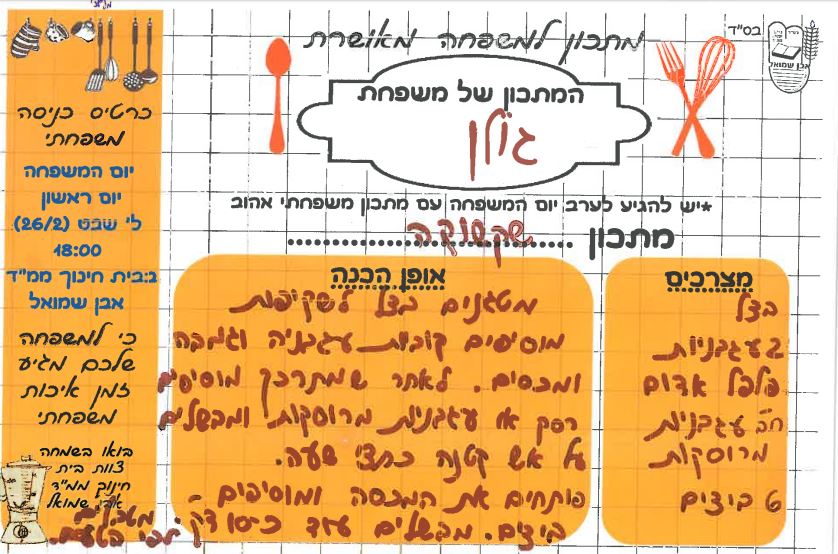 בס"ד
אבן שמואל
מתכון למשפחה מאושרת
המתכון של משפחת
גולן
*יש להגיע לערב יום המשפחה עם מתכון משפחתי אהוב
מתכון שקשוקה
מצרכים
בצל
2 עגבניות
פלפל אדום
עגבניות
מרוסקות
6 ביצים
אופן הכנה
מטגנים בצל לשקיפות
מוסיפים קוביות עגבניה וגמבה
ומכסים. לאחר שמתרכך מוסיפים
רסק או עגבניות מרוסקות ומבשלים
על אש קטנה כחצי שעה.
פותחים את המכסה ומוסיפים
ביצים. מבשלים עוד
כרטיס כניסה
משפחתי
יום המשפחה
יום ראשון
ל' שבט (26/2)
18:00
ב:בית חינוך ממ"ד
אבן שמואל
כי למשפחה
שלכם מגיע
זמן איכות
משפחתי
בואו בשמחה
צוות בית
חינוך ממ"ד
אבן שמואל